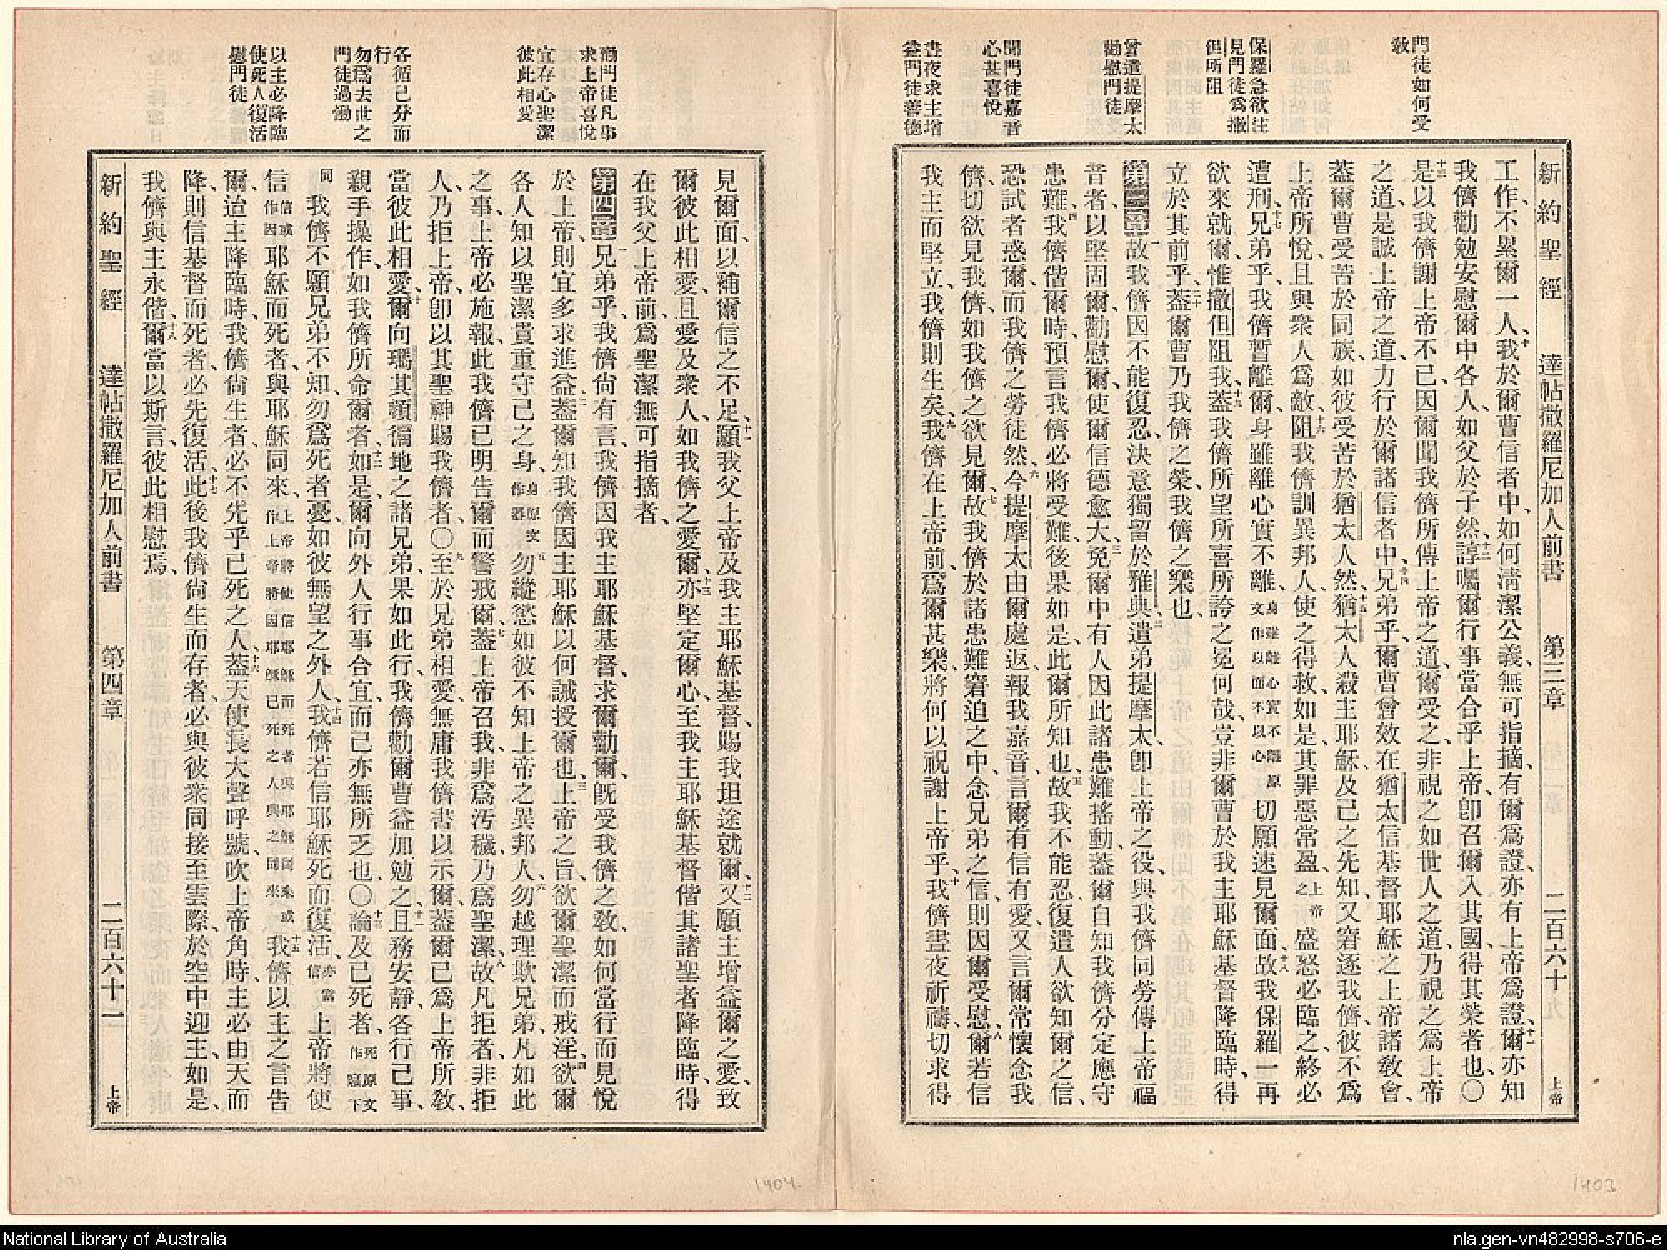 門徒如何受
教
保羅急欲往
見門徒爲撒
但所阻
曾遣提摩太
勸慰門徒
聞門徒嘉音
心甚喜悅
晝夜求主增
益門徒善德
新約聖經 達帖撒羅尼加人前書 第三章 二百六十 上帝
工作、不累爾一人、十我於爾曹信者中、如何清潔公義、無可指摘、有爾爲證、亦有上帝爲證、十一爾亦知
我儕勸勉安慰爾中各人、如父於子然、十二諄囑爾行事當合乎上帝、卽召爾入其國、得其榮者也、〇
十三是以我儕謝上帝不已、因爾聞我儕所傳上帝之道、爾受之、非視之如世人之道、乃視之爲上帝
之道、是誠上帝之道、力行於爾諸信者中、十四兄弟乎、爾曹曾效在猶太信基督耶穌之上帝諸教會、
蓋爾曹受苦於同族、如彼受苦於猶太人然、十五猶太人殺主耶穌、及己之先知、又窘逐我儕、彼不爲
上帝所悅、且與衆人爲敵、十六阻我儕訓異邦人、使之得救、如是、其罪惡常盈、上帝之盛怒必臨之、終必
遭刑、十七兄弟乎、我儕暫離爾、身雖離心實不離、身雖離心實不離原文作以面不以心切願速見爾面、十八故我保羅一再
欲來就爾、惟撒但阻我、十九蓋我儕所望所喜所誇之冕何哉、豈非爾曹於我主耶穌基督降臨時、得
立於其前乎、二十蓋爾曹乃我儕之榮、我儕之樂也、
第三章 一故我儕因不能復忍、決意獨留於雅典、二遣弟提摩太、卽上帝之役、與我儕同勞傳上帝福
音者、以堅固爾、勸慰爾、使爾信德愈大、三免爾中有人因此諸患難搖動、蓋爾自知我儕分定應守
患難、四我儕偕爾時、預言我儕必將受難、後果如是、此爾所知也、五故我不能忍、復遣人欲知爾之信、
恐試者惑爾、而我儕之勞徒然、六今提摩太由爾處返、報我嘉音、言爾有信有愛、又言爾常懷念我
儕、切欲見我儕、如我儕之欲見爾、七故我儕於諸患難窘迫之中、念兄弟之信、則因爾受慰、八爾若信
我主而堅立、我儕則生矣、九我儕在上帝前、爲爾甚樂、將何以祝謝上帝乎、十我儕晝夜祈禱、切求得
1403
勸門徒凡事
求上帝喜悅
宜存心聖潔
彼此相愛
各循己分而
行
勿爲去世之
門徒過慟
以主必降臨
使死人復活
慰門徒
見爾面、以補爾信之不足、十一願我父上帝、及我主耶穌基督、賜我坦途就爾、十二又願主增益爾之愛、致
爾彼此相愛、且愛及衆人、如我儕之愛爾、十三亦堅定爾心、至我主耶穌基督偕其諸聖者降臨時、得
在我父上帝前、爲聖潔無可指摘者、
第四章 一兄弟乎、我儕尙有言、我儕因我主耶穌基督、求爾勸爾、旣受我儕之教、如何當行而見悅
於上帝、則宜多求進益、二蓋爾知我儕因主耶穌以何誡授爾也、三上帝之旨、欲爾聖潔而戒淫、四欲爾
各人知以聖潔貴重守己之身、身原文作器五勿縱慾如彼不知上帝之異邦人、六勿越理欺兄弟、凡如此
之事、上帝必施報、此我儕已明告爾而警戒爾、七蓋上帝召我、非爲汚穢、乃爲聖潔、八故凡拒者、非拒
人、乃拒上帝、卽以其聖神賜我儕者、〇九至於兄弟相愛、無庸我儕書以示爾、蓋爾已爲上帝所教、
當彼此相愛、十爾向瑪其頓徧地之諸兄弟、果如此行、我儕勸爾曹益加勉之、十一且務安靜、各行己事、
親手操作、如我儕所命爾者、十二如是、爾向外人行事合宜、而己亦無所乏也、〇十三論及已死者、死原文作寢下
同我儕不願兄弟不知、勿爲死者憂、如彼無望之外人、十四我儕若信耶穌死而復活、亦當信上帝將使
信或作因耶穌而死者、與耶穌同來、上帝將使信耶穌而死者與耶穌同來或作上帝將因耶穌已死之人與之同來十五我儕以主之言告
爾、迨主降臨時、我儕尙生者、必不先乎已死之人、十六蓋天使長大聲呼號、吹上帝角時、主必由天而
降、則信基督而死者、必先復活、十七此後我儕尙生而存者、必與彼衆同接至雲際、於空中迎主、如是、
我儕與主永偕、十八爾當以斯言、彼此相慰焉、
新約聖經 達帖撒羅尼加人前書 第四章 二百六十一 上帝
1404
National Library of Australia
nla.gen-vn482998-s706-e